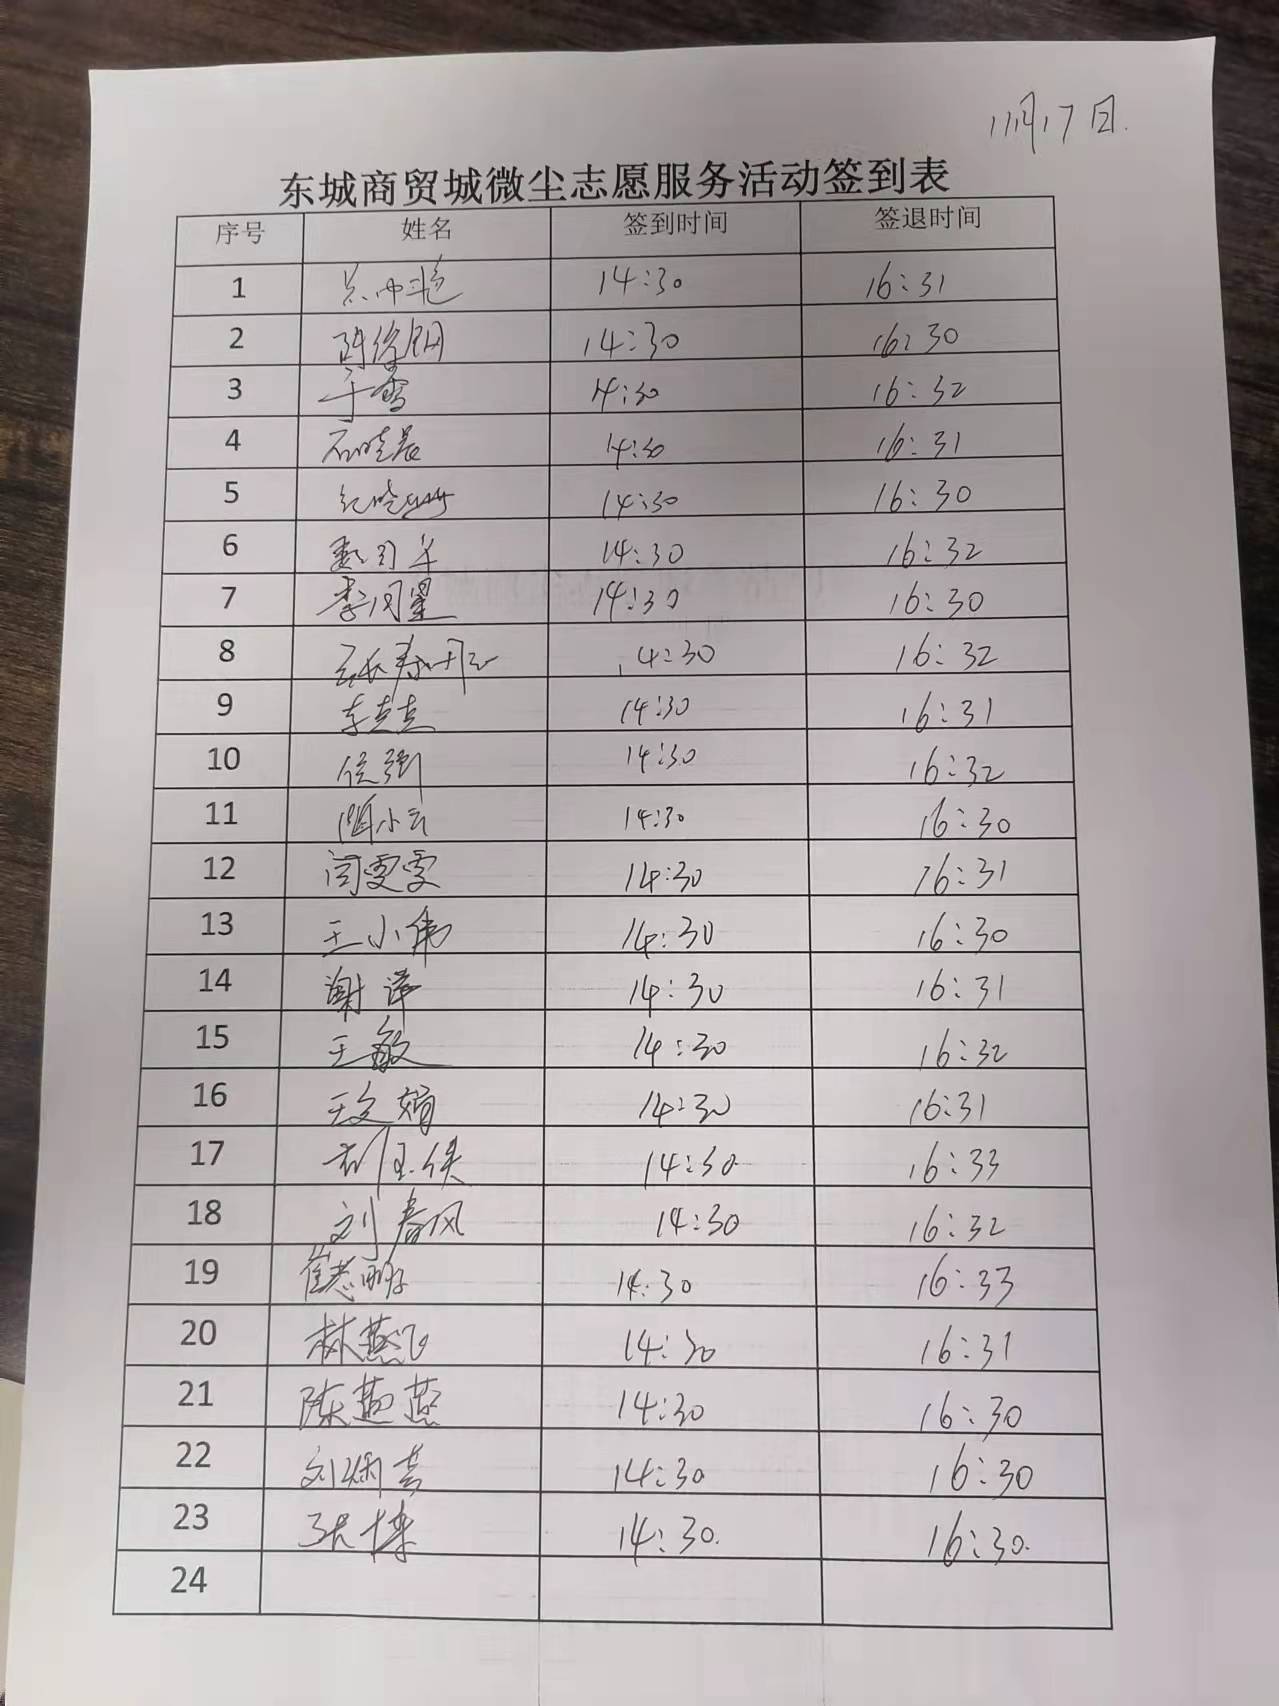 11月17日.
东城商贸城微尘志愿服务活动签到表
序号 姓名 签到时间 签退时间
1 14:30 16:31
2 14:30 16:30
3 于雪 14:30 16:32
4 石晓晨 14:30 16:31
5 14:30 16:30
6 14:30 16:32
7 李同星 14:30 16:30
8 14:30 16:32
9 李喆喆 14:30 16:31
10 侯强 14:30 16:32
11 小云 14:30 16:30
12 闫雯雯 14:30 16:31
13 王小伟 14:30 16:30
14 谢萍 14:30 16:31
15 王敏 14:30 16:32
16 王文娟 14:30 16:31
17 14:30 16:33
18 刘春风 14:30 16:32
19 崔志 14:30 16:33
20 林燕飞 14:30 16:31
21 陈燕燕 14:30 16:30
22 刘 14:30 16:30
23 张博 14:30. 16:30.
24